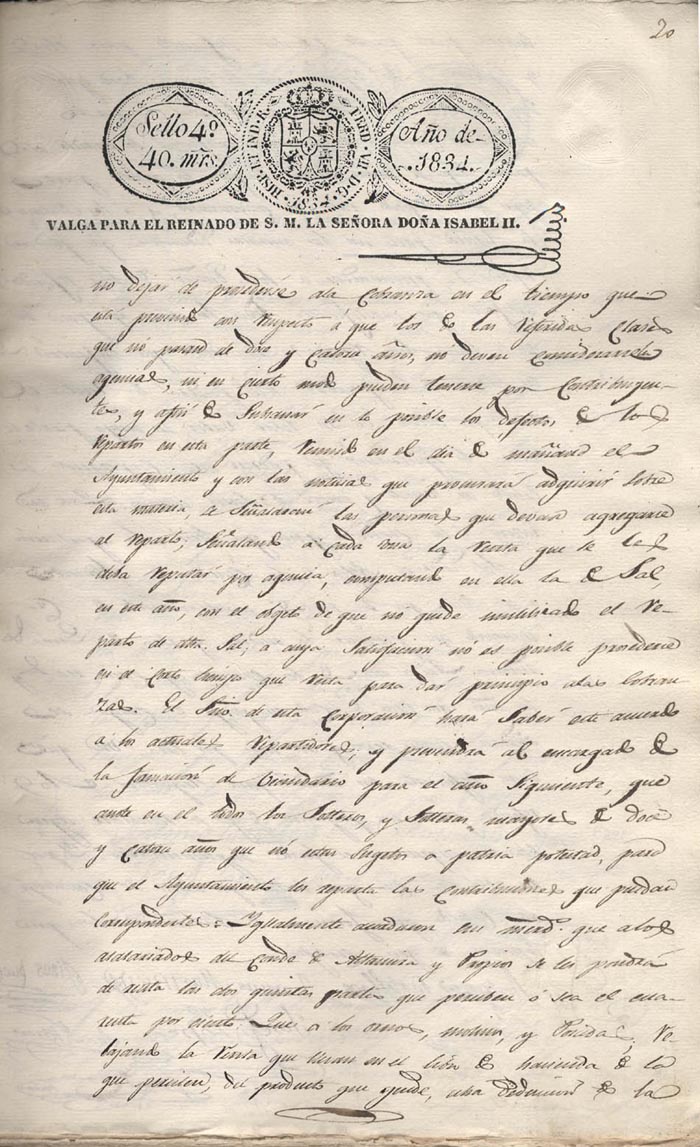 20
Sello 4º
40. mrs.
HISP. ET IND. R. FERD. VII D. G.
1834.
Año de
1834.
VALGA PARA EL REINADO DE S. M. LA SEÑORA DOÑA ISABEL II.
no dejar de procederse ala Cobranza en el tiempo que
esta prevenido con respecto á que los de las referidas Clases
que no pasand de doce y Catorce años, no deven considerarsele
agencias, ni en cierto modo pueden tenerse por Contribuyen-
tes, y afin de Subsanar en lo posible los defectos de los
repartos en esta parte, reunido en el dia de mañana el
Ayuntamiento y con las noticias que procurará adquirir sobre
esta materia, se Señalaran las personas que devan agregarse
al reparto, Señaland á Cada una la renta que se les
deba reputar por agencia, computand en ella la de Sal,
en este año, con el objeto de que no quede inutilizado el re-
parto de dha. Sal, a cuya Satisfaccion no es posible procederse
en el Corto tiempo que resta para dar principio alas Cobran-
zas. El Srio. de esta Corporacion hara Saber este acuerdo
a los actuales repartidores, y prevendrá al encargado de
la formacion de Vecindario para el año Siguiente, que
anote en el todos los Solteros, y Solteras mayores de doce
y Catorce años que nó esten Sugetos a patria potestad, para
que el Ayuntamiento les reparta las Contribuciones que puedan
Corresponderles = Igualmente acordaron sus mercd. que alos
asalariados del Conde de Altamira y Propios se les pondrá
de renta las dos quintas partes que perciben ó sea el cua-
renta por ciento Que a los ornos, molinos, y Posidas, re-
bajando la renta que llevan en el libro de hacienda de la
que perciben, del producto que quede, una deduccion de la